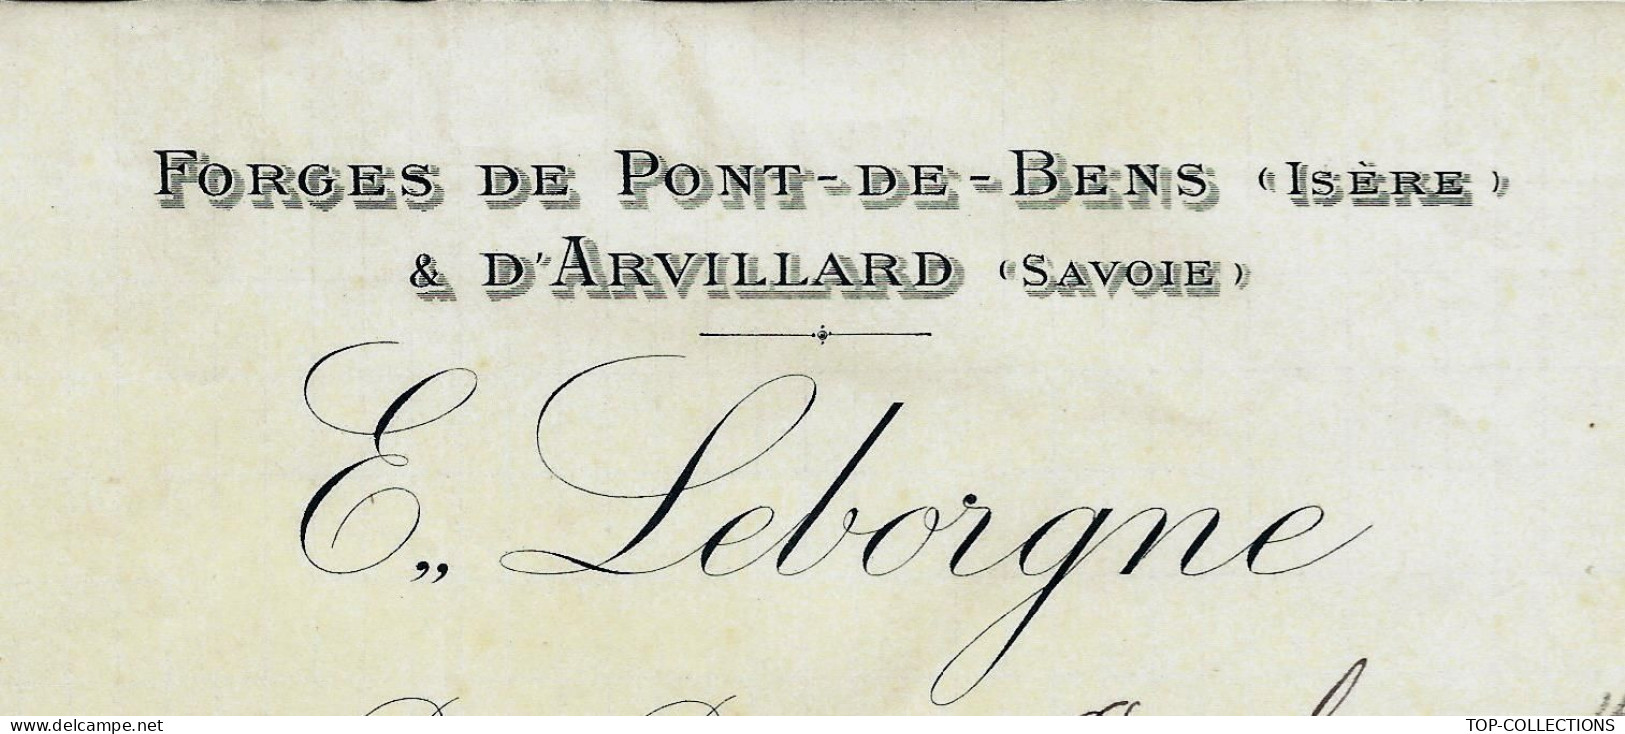 FORGES DE PONT-DE-BENS (ISÈRE)
& D'ARVILLARD (SAVOIE)
E,, Leborgne
www.delcampe.net
TOP-COLLECTIONS